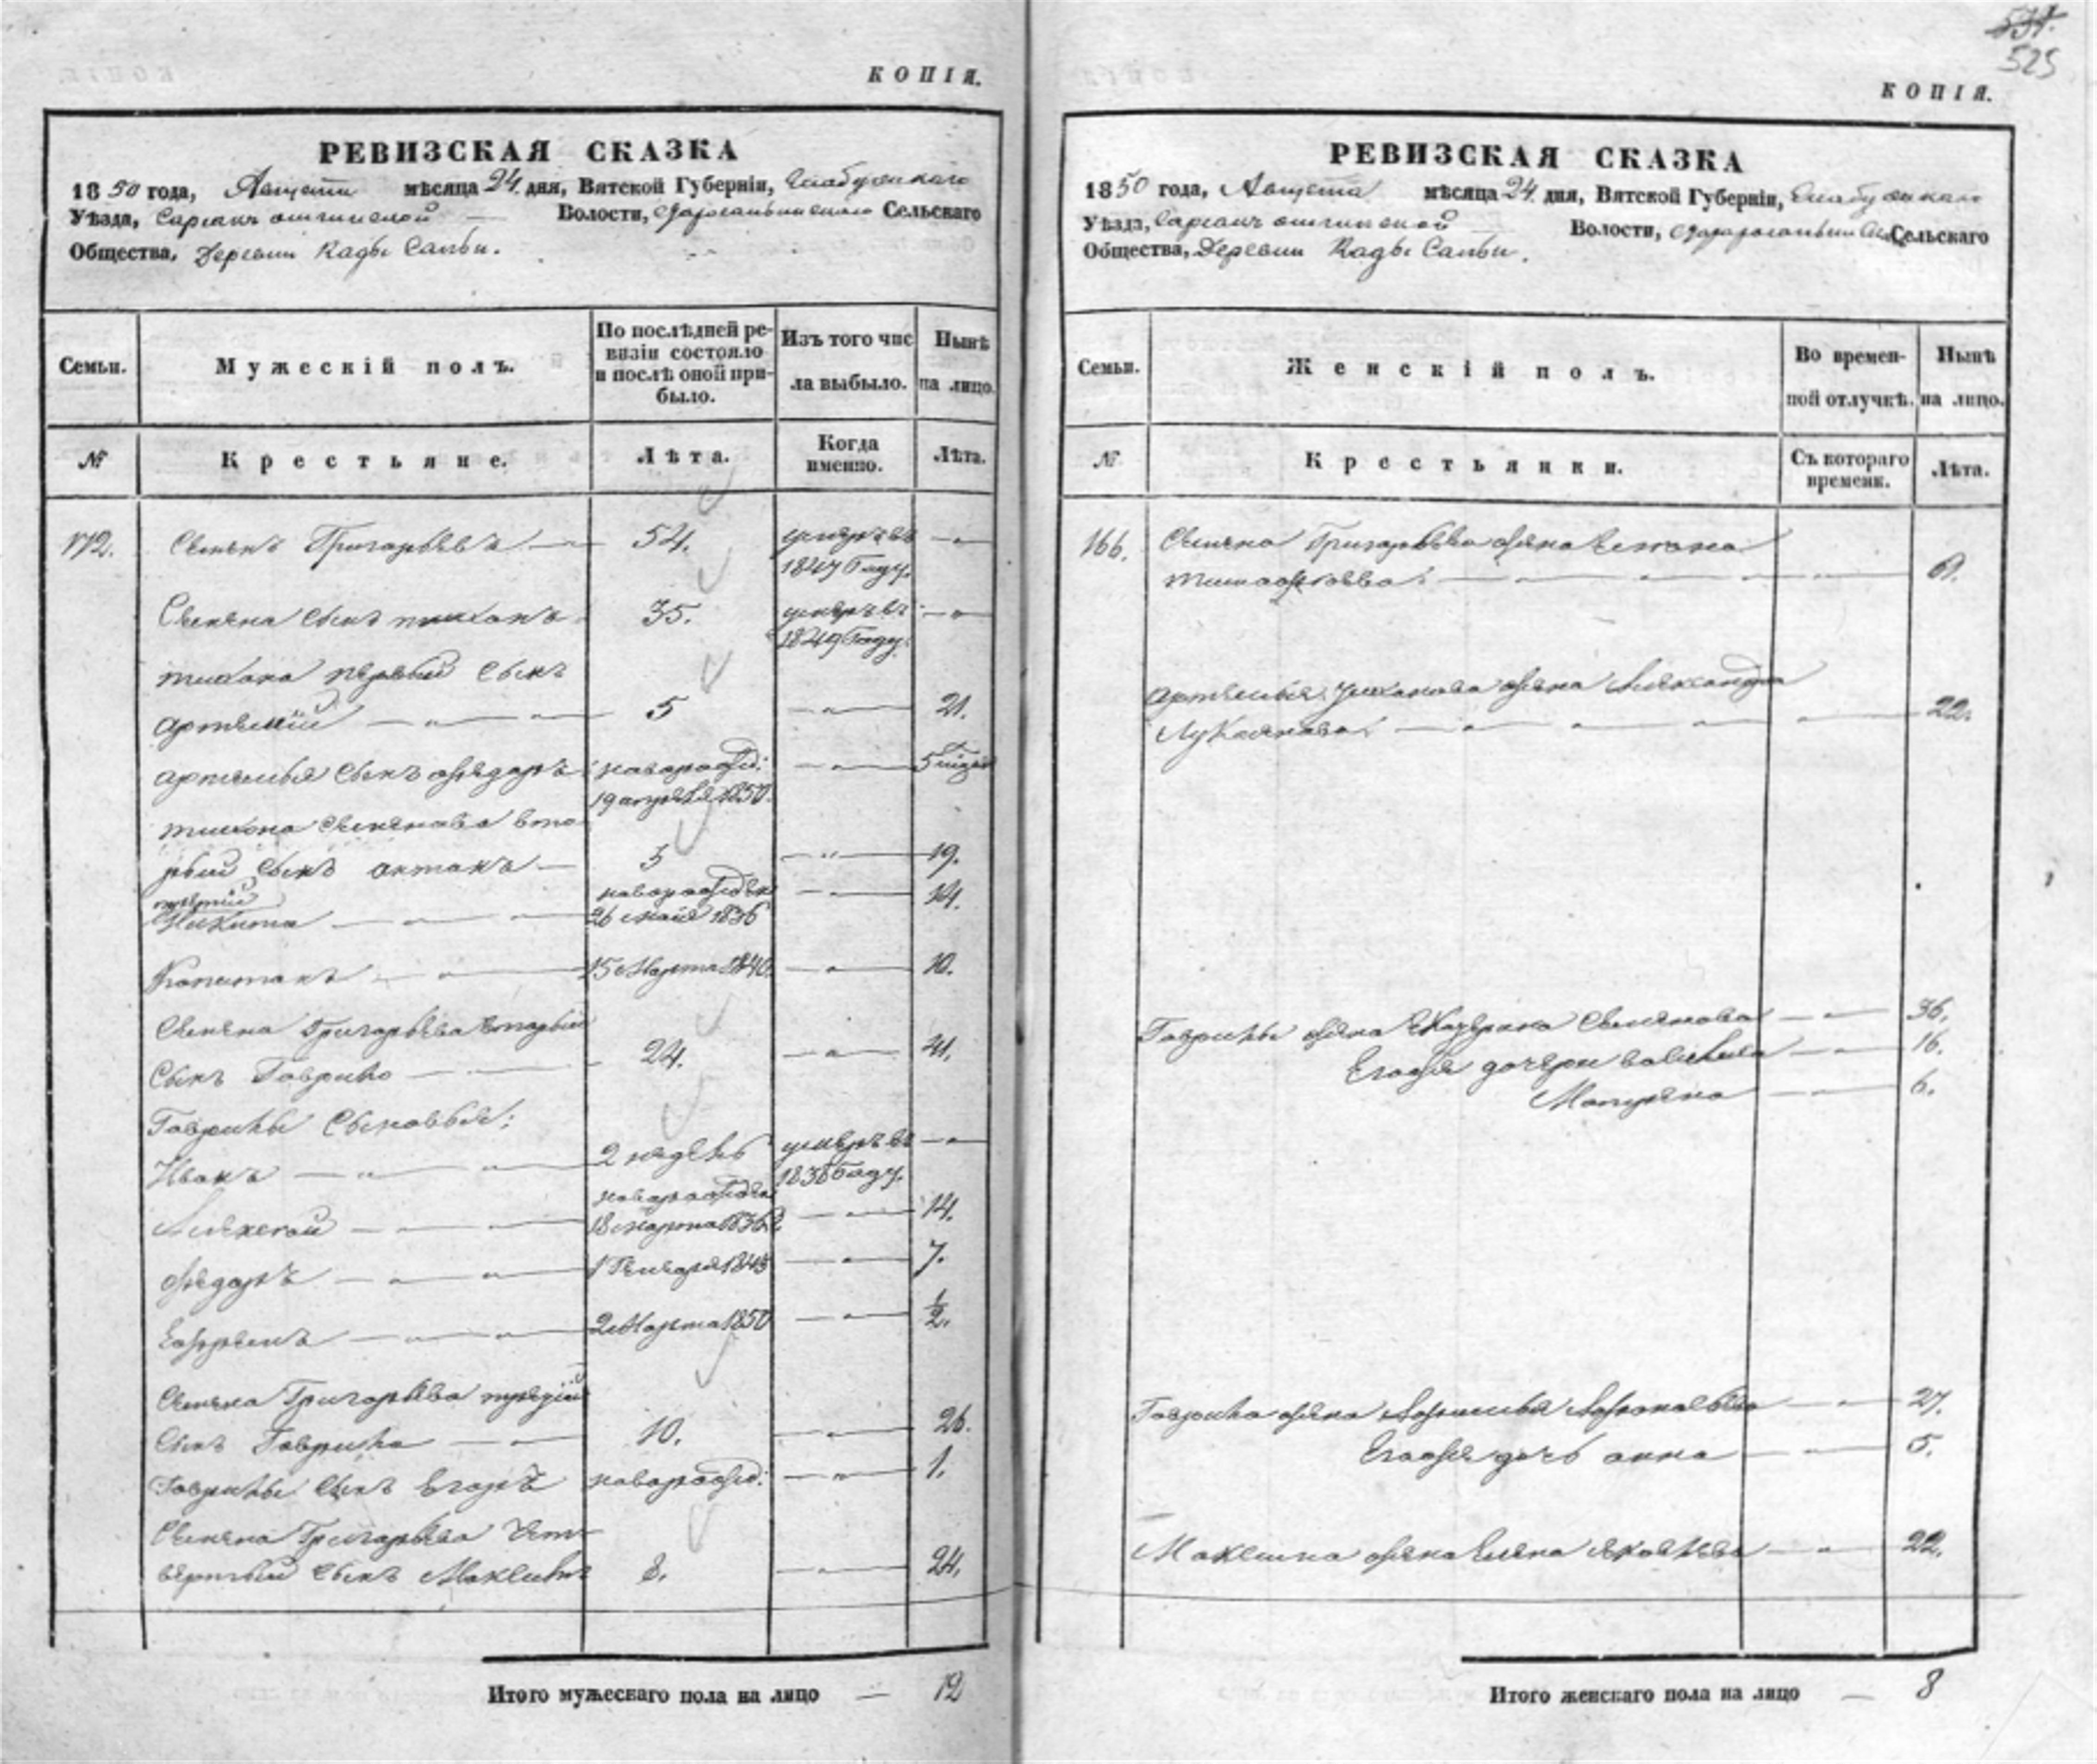 531.
525
КОПІЯ.
РЕВИЗСКАЯ СКАЗКА
1850 года, Августа мѣсяца 24 дня, Вятской Губерніи, Елабужскаго
Уѣзда, Волости, Сельскаго
Общества, Деревни Кады Сальи.
Семьи.
Мужескій полъ.
По послѣдней ре-
визіи состояло
и послѣ оной при-
было.
Изъ того чис
ла выбыло.
Нынѣ
на лицо.
№
Крестьяне.
Лѣта.
Когда
именно.
Лѣта.
172. Семенъ Григорьевъ 54. умеръ въ
1847 Году.
Семена сынъ тихонъ 35. умеръ въ
1849 Году.
тихона первый сынъ
артемій 5 21.
артемья сынъ ѳедоръ новорожд:
19 апреля 1850.
тихона семенова вто
рый сынъ антонъ 3 19.
третій новорожден 14.
Никита 26 мая 1836
Капитонъ 15 Марта 1840. 10.
Семена Григорьева вторый
сынъ Гаврило 24. 41.
Гаврилы сыновья:
Иванъ 2 недель умеръ въ
1835 Году.
новорожден
Алексей 18 марта 1836 14.
ѳедоръ 1 Генваря 1843 7.
Ефремъ 2 Марта 1850 1/2.
Семена Григорьева третій
сынъ Гаврила 10. 26.
Гаврилы сынъ Егоръ новорожд: 1.
Семена Григорьева чет
вертый сынъ 8. 24.
Итого мужескаго пола на лицо — 12
КОПІЯ.
РЕВИЗСКАЯ СКАЗКА
1850 года, Августа мѣсяца 24 дня, Вятской Губерніи, Елабужскаго
Уѣзда, Волости, Сельскаго
Общества, Деревни Кады Сальи.
Семьи.
Женскій полъ.
Во времен-
ной отлучкѣ.
Нынѣ
на лицо.
№
Крестьянки.
Съ котораго
времени.
Лѣта.
166. Семена Григорьева жена
тимофеева 61.
артемья тихонова жена Александра
Лукоянова 22.
Гаврилы жена Семенова 36.
Егожа дочери василиса 16.
Матрена 6.
Гаврила жена 27.
Егожа дочь анна 5.
Максима жена Елена яковлева 22.
Итого женскаго пола на лицо — 8